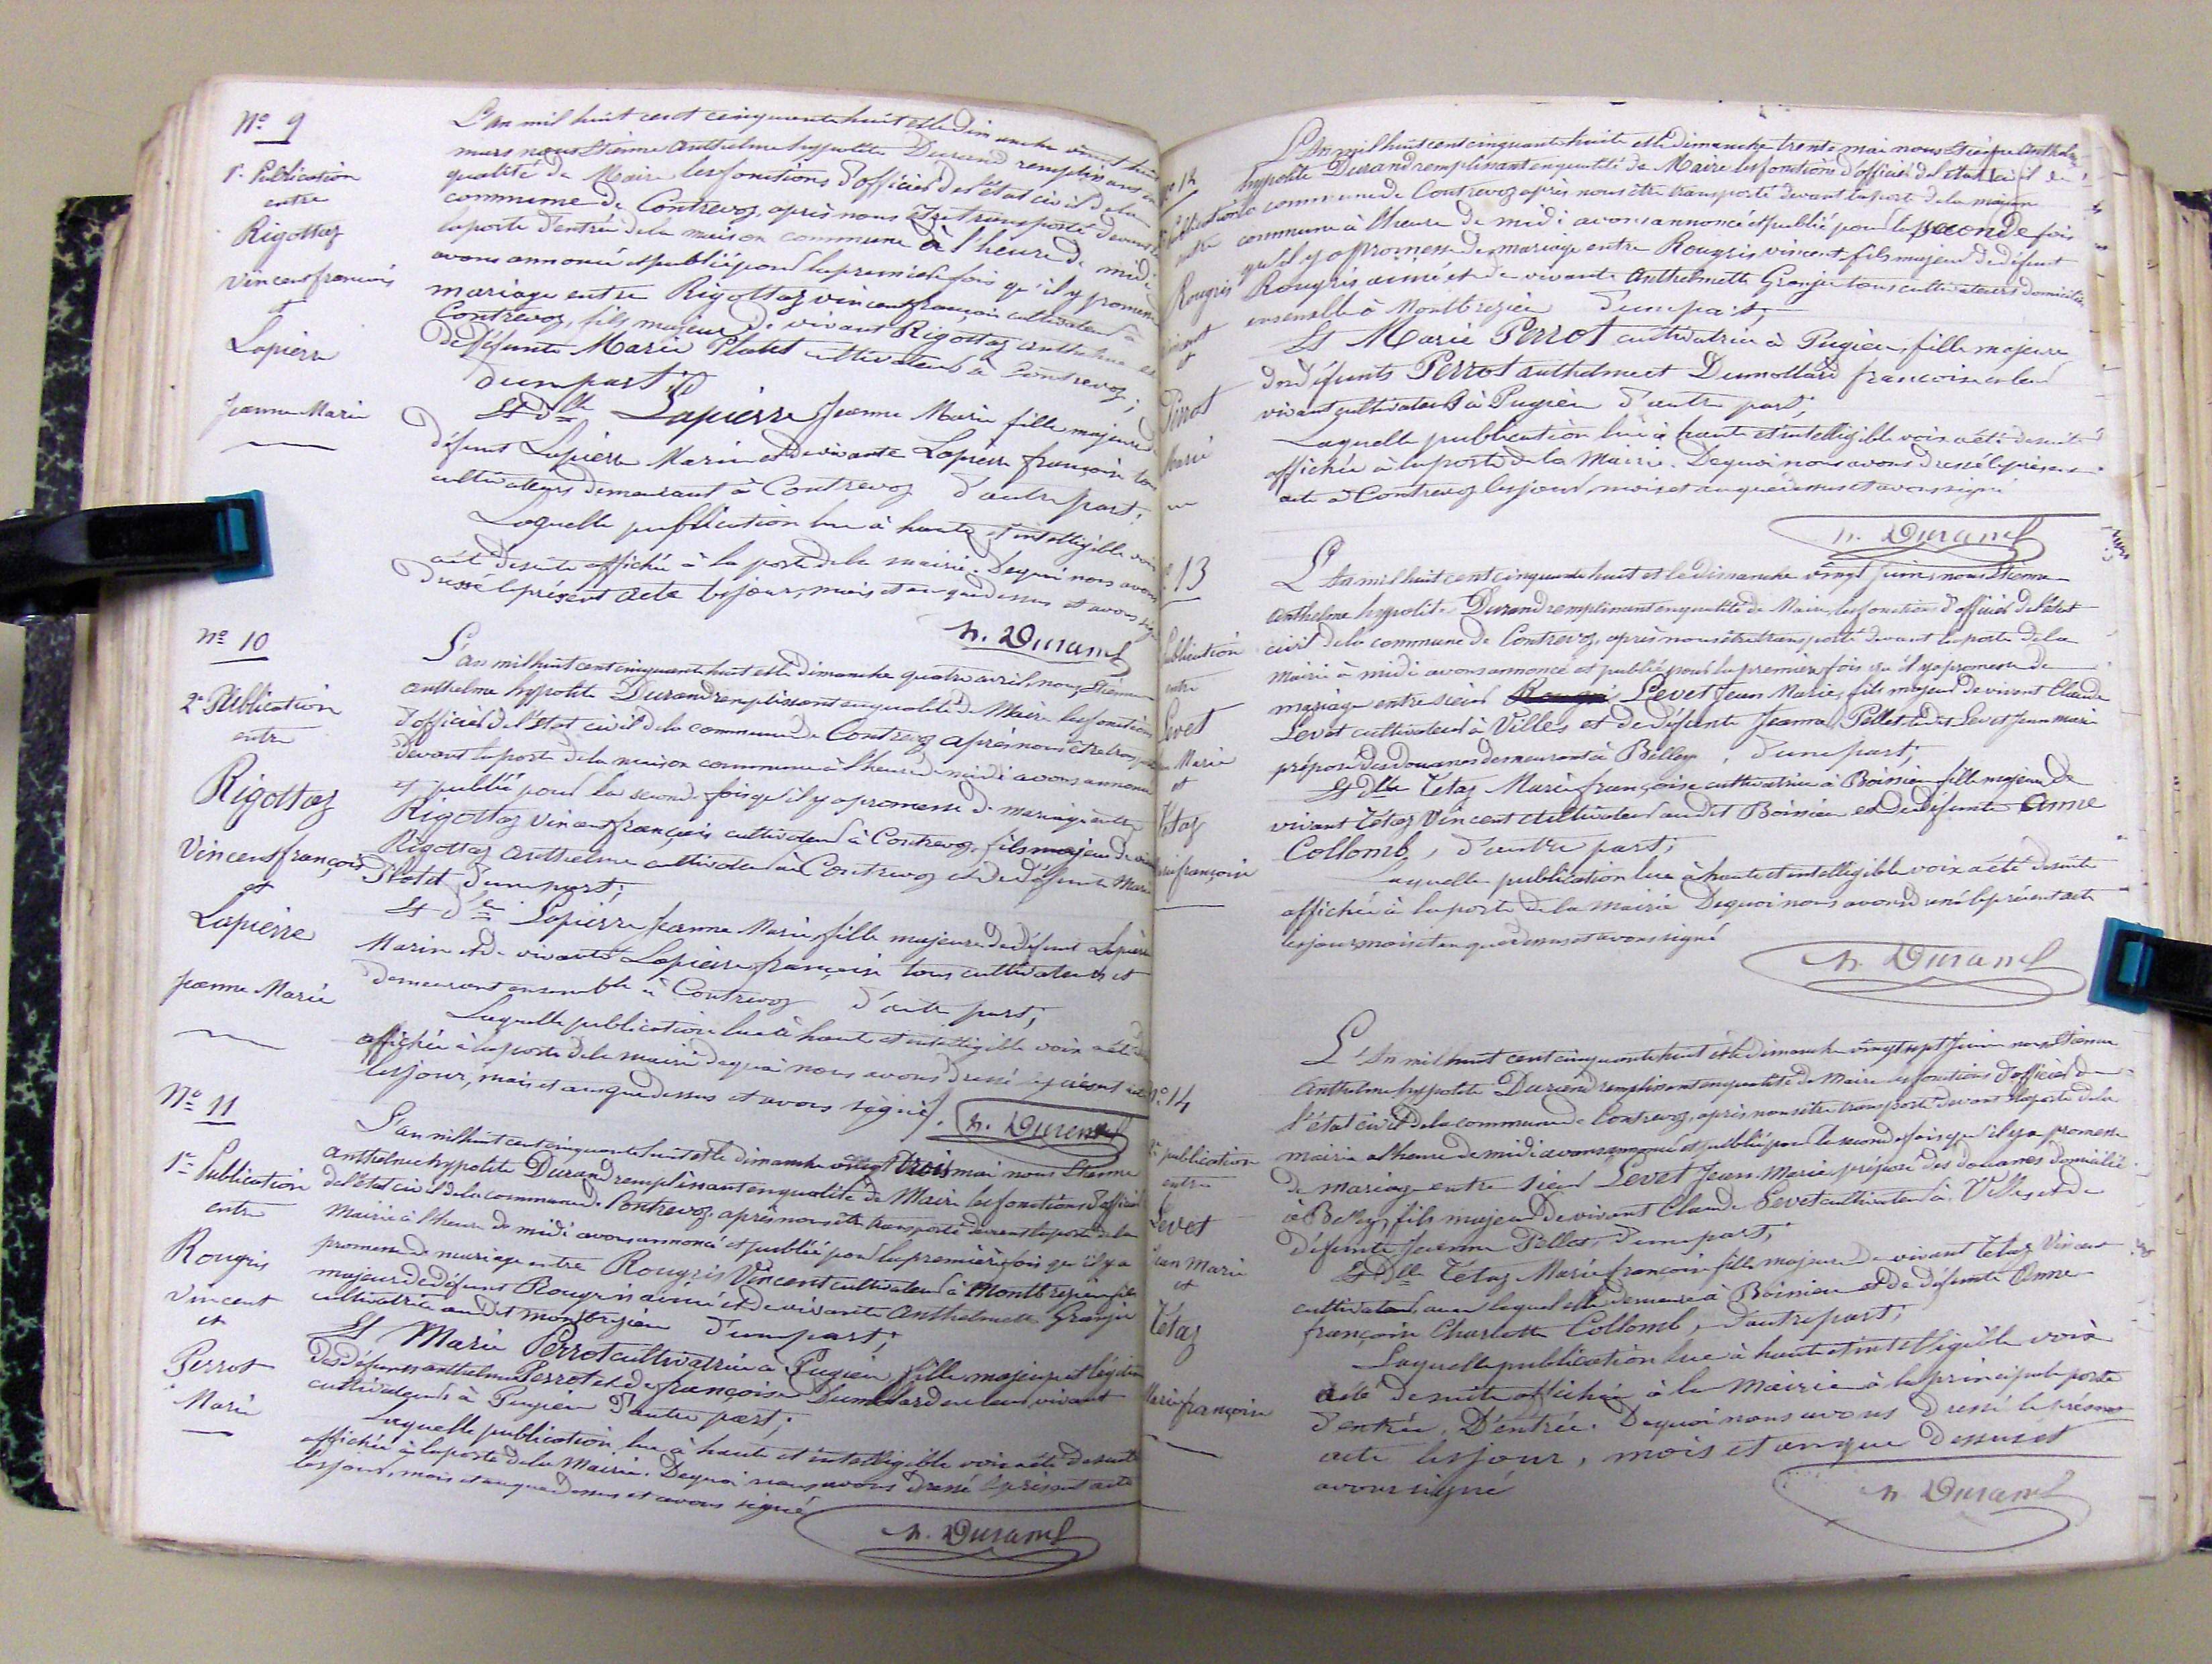 Nº 9
1e Publication
entre
Rigottaz
Vincent françois
et
Lapierre
Jeanne Marie
L'an mil huit cent cinquante huit et le Dimanche vingt huit
mars nous Etienne Anthelme hypolite Durand remplissant en
qualité de Maire les fonctions d'officier de l'état civil de la
commune de Contrevoz, après nous être transporté devant
la porte d'entrée de la maison commune à l'heure de midi
avons annoncé et publié pour la première fois qu'il y promesse
mariage entre Rigottaz vincent françois cultivateur à
Contrevoz, fils majeur de vivant Rigottaz anthelme et
de défunte Marie Platet cultivateurs à Contrevoz;
d'une part;
Et Dlle Lapierre Jeanne Marie fille majeure de
défunt Lapierre Marin et de vivante Lapierre françoise tous
cultivateurs demeurant à Contrevoz d'autre part;
Laquelle publication lue à haute et intelligible voix
a été de suite affichée à la porte de la mairie. De quoi nous avons
dressé le présent acte les jour, mois et an que dessus et avons signé
h. Durand
Nº 10
2e Publication
entre
Rigottaz
Vincent françois
et
Lapierre
Jeanne Marie
L'an mil huit cent cinquante huit et le dimanche quatre avril, nous Etienne
anthelme hypolite Durand remplissant en qualité de Maire les fonctions
d'officier de l'état civil de la commune de Contrevoz après nous être transporté
devant la porte de la maison commune à l'heure de midi avons annoncé
et publié pour la seconde fois qu'il y a promesse de mariage entre
Rigottaz Vincent françois cultivateur à Contrevoz, fils majeur de vivant
Rigottaz Anthelme cultivateur à Contrevoz et de défunte Marie
Platet d'une part;
Et Dlle Lapierre Jeanne Marie, fille majeure de défunt Lapierre
Marin et de vivante Lapierre françoise tous cultivateurs et
demeurant ensemble à Contrevoz d'autre part;
Laquelle publication lue à haute et intelligible voix a été de
affichée à la porte de la mairie de quoi nous avons dressé le présent acte
les jour, mois et an que dessus et avons signé.
h. Durand
Nº 11
1re Publication
entre
Rougris
Vincent
et
Perrot
Marie
L'an mil huit cent cinquante huit et le dimanche vingt trois mai nous Etienne
anthelme hypolite Durand remplissant en qualité de Maire les fonctions d'officier
de l'état civil de la commune de Contrevoz après nous être transporté devant la porte de la
Mairie à l'heure de midi avons annoncé et publié pour la première fois qu'il y a
promesse de mariage entre Rougris Vincent cultivateur à Montbrezieu fils
majeur de défunt Rougris aimé et de vivante Anthelmette Granjer
cultivatrice audit montbrezieu d'une part;
Et Marie Perrot cultivatrice à Pugieu fille majeure et légitime
des défunts anthelme Perrot et de françoise Dumollard en leur vivant
cultivateurs à Pugieu d'autre part;
Laquelle publication, lue à haute et intelligible voix a été de suite
affichée à la porte de la Mairie. De quoi nous avons dressé le présent acte
les jour, mois et an que dessus et avons signé
h. Durand
nº 12
publication
entre
Rougris
vincent
et
Perrot
Marie
L'An mil huit cent cinquante huit et le dimanche trente mai nous Etienne Anthelme
hypolite Durand remplissant en qualité de Maire les fonctions d'officier de l'état civil de
la commune de Contrevoz après nous être transporté devant la porte de la maison
commune à l'heure de midi avons annoncé et publié pour la seconde fois
qu'il y a promesse de mariage entre Rougris vincent fils majeur de défunt
Rougris aimé et de vivante Anthelmette Granjer tous cultivateurs domiciliés
ensemble à Montbrezieu d'une part;
Et Marie Perrot cultivatrice à Pugieu, fille majeure
des défunts Perrot anthelme et Dumollard françoise en leur
vivant cultivateurs à Pugieu d'autre part;
Laquelle publication lue à haute et intelligible voix a été de suite
affichée à la porte de la Mairie. De quoi nous avons dressé le présent
acte à Contrevoz les jour, mois et an que dessus et avons signé
h. Durand
nº 13
Publication
entre
Levet
Jean Marie
et
Tétaz
Marie françoise
L'An mil huit cent cinquante huit et le dimanche vingt Juin, nous Etienne
Anthelme hypolite Durand remplissant en qualité de Maire les fonctions d'officier de l'état
civil de la commune de Contrevoz, après nous être transporté devant la porte de la
mairie à midi avons annoncé et publié pour la première fois qu'il y a promesse de
mariage entre sieur Levet Jean Marie, fils majeur de vivant Claude
Levet cultivateur à Villes et de défunte Jeanne Pellet, ledit Levet Jean marie
préposé des douanes demeurant à Belley, d'une part;
Et Dlle Tétaz Marie françoise cultivatrice à Boissieu fille majeure de
vivant Tétaz Vincent cultivateur audit Boissieu et de défunte Anne
Collomb, d'autre part;
Laquelle publication lue à haute et intelligible voix a été de suite
affichée à la porte de la mairie De quoi nous avons dressé le présent acte
les jour mois et an que dessus et avons signé
h. Durand
nº 14
2e publication
entre
Levet
Jean Marie
et
Tétaz
Marie françoise
L'An mil huit cent cinquante huit et le dimanche vingt sept Juin nous Etienne
Anthelme hypolite Durand remplissant en qualité de Maire les fonctions d'officier de
l'état civil de la commune de Contrevoz, après nous être transporté devant la porte de la
mairie à l'heure de midi avons annoncé et publié pour la seconde fois qu'il y a promesse
de mariage entre sieur Levet Jean Marie préposé des douanes domicilié
à Belley, fils majeur de vivant Claude Levet cultivateur à Villes et de
défunte Jeanne Pellet, d'une part;
Et Dlle Tétaz Marie françoise fille majeure de vivant Tétaz Vincent
cultivateur, avec lequel elle demeure à Boissieu et de défunte Anne
françoise Charlotte Collomb, d'autre part;
Laquelle publication lue à haute et intelligible voix
a été de suite affichée à la Mairie à la principale porte
d'entrée. D'entrée. De quoi nous avons dressé le présent
acte les jour, mois et an que dessus et
avons signé
h. Durand